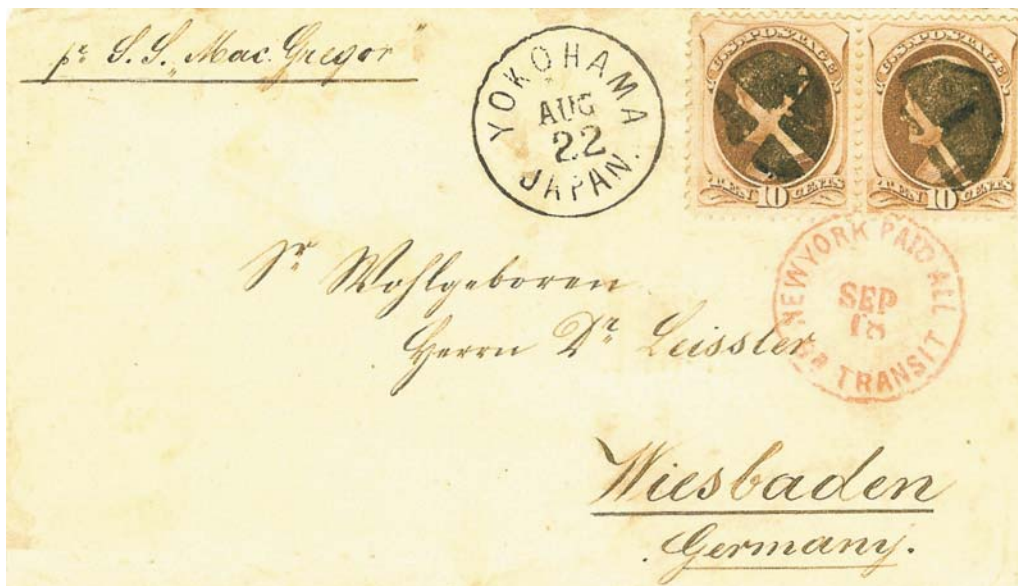 pr S.S. „Mac. Gregor"
YOKOHAMA
AUG
22
JAPAN.
U.S. POSTAGE
TEN 10 CENTS
U.S. POSTAGE
TEN 10 CENTS
NEW YORK PAID ALL
SEP
18
BR TRANSIT
Sr Wohlgeboren
Herrn Dr Leissler
Wiesbaden
Germany.